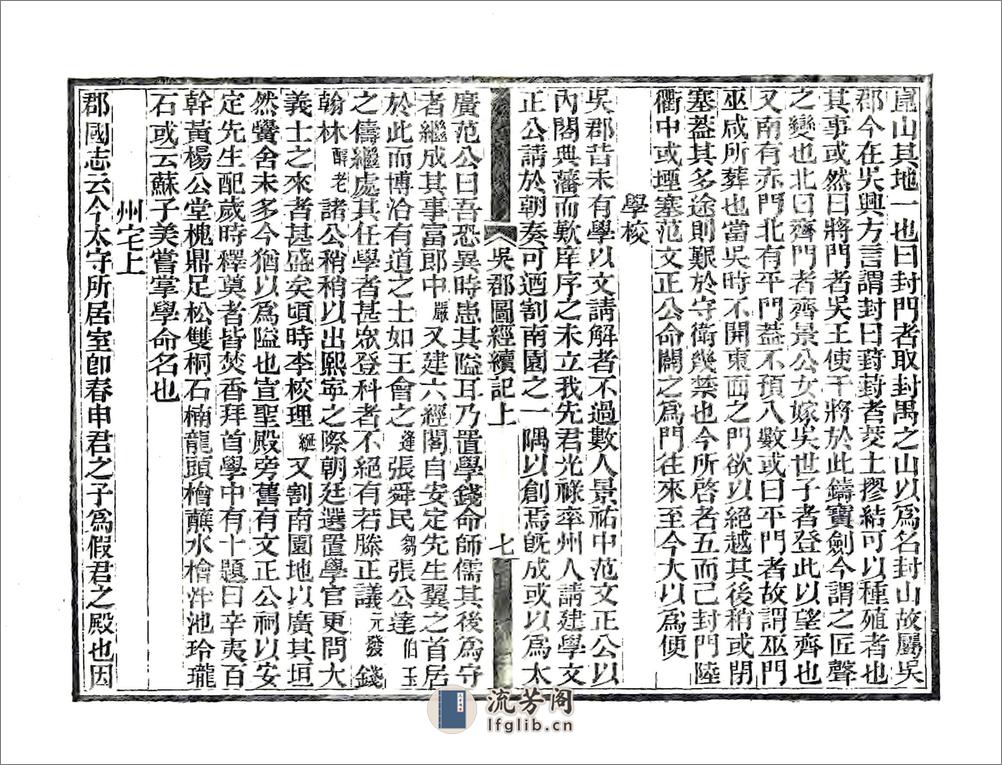 崑山其地一也曰封門者取封禺之山以爲名封山故屬吳
郡今在吳興方言謂封曰葑葑者茭土摎結可以種殖者也
其事或然曰將門者吳王使干將於此鑄寶劍今謂之匠聲
之變也北曰齊門者齊景公女嫁吳世子者登此以望齊也
又南有赤門北有平門蓋不預八數或曰平門者故謂巫門
巫咸所葬也當吳時不開東面之門欲以絕越其後稍或閉
塞蓋其多途則艱於守衛幾禁也今所啓者五而已封門陸
衢中或堙塞范文正公命闢之爲門往來至今大以爲便
學校
吳郡昔未有學以文請解者不過數人景祐中范文正公以
內閣典藩而歎庠序之未立我先君光祿率州人請建學文
正公請於朝奏可迺割南園之一隅以創焉旣成或以爲太
吳郡圖經續記上
七
廣范公曰吾恐異時患其隘耳乃置學錢命師儒其後爲守
者繼成其事富郎中嚴又建六經閣自安定先生翼之首居
於此而博洽有道之士如王會之逢張舜民芻張公達伯玉
之儔繼處其任學者甚眾登科者不絕有若滕正議元發錢
翰林醇老諸公稍稍以出熙寧之際朝廷選置學官更問大
義士之來者甚盛矣頃時李校理綖又割南園地以廣其垣
然黌舍未多今猶以爲隘也宣聖殿旁舊有文正公祠以安
定先生配歲時釋奠者皆焚香拜首學中有十題曰辛夷百
幹黃楊公堂槐鼎足松雙桐石楠龍頭檜蘸水檜泮池玲瓏
石或云蘇子美嘗掌學命名也
州宅上
郡國志云今太守所居室卽春申君之子爲假君之殿也因
流芳阁
lfglib.cn